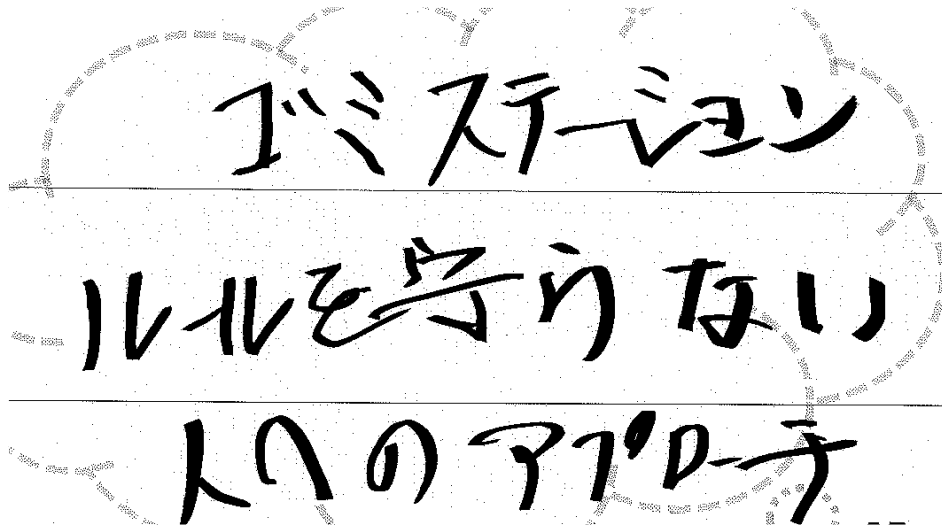 ゴミステーション
ルールを守らない
人へのアプローチ